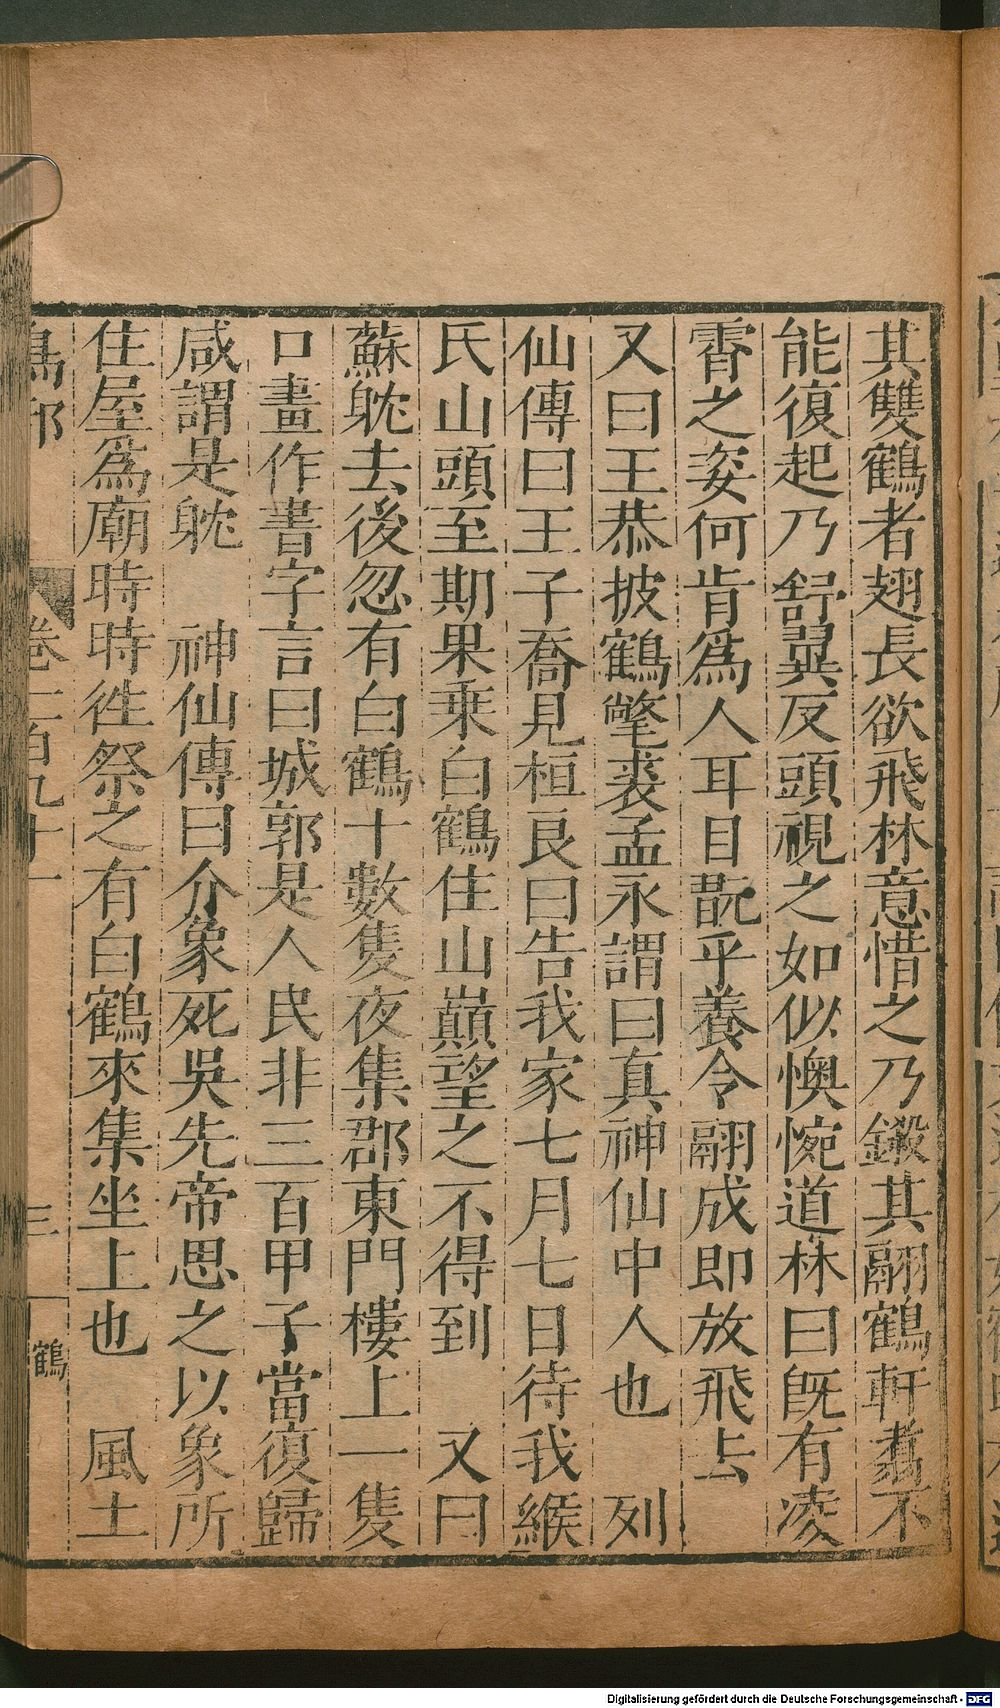 其雙鶴者翅長欲飛林意惜之乃鎩其翮鶴軒翥不
能復起乃舒翼反頭視之如似懊惋道林曰既有凌
霄之姿何肯爲人耳目翫乎養令翮成即放飛去
又曰王恭披鶴氅裘孟永謂曰真神仙中人也　列
仙傳曰王子喬見桓良曰告我家七月七日待我緱
氏山頭至期果乗白鶴住山巔望之不得到　又曰
蘇躭去後忽有白鶴十數隻夜集郡東門樓上一隻
口畫作書字言曰城郭是人民非三百甲子當復歸
咸謂是躭　神仙傳曰介象死吳先帝思之以象所
住屋爲廟時時徃祭之有白鶴來集坐上也　風土
鳥部　卷二百九十一　三　鶴
Digitalisierung gefördert durch die Deutsche Forschungsgemeinschaft - DFG